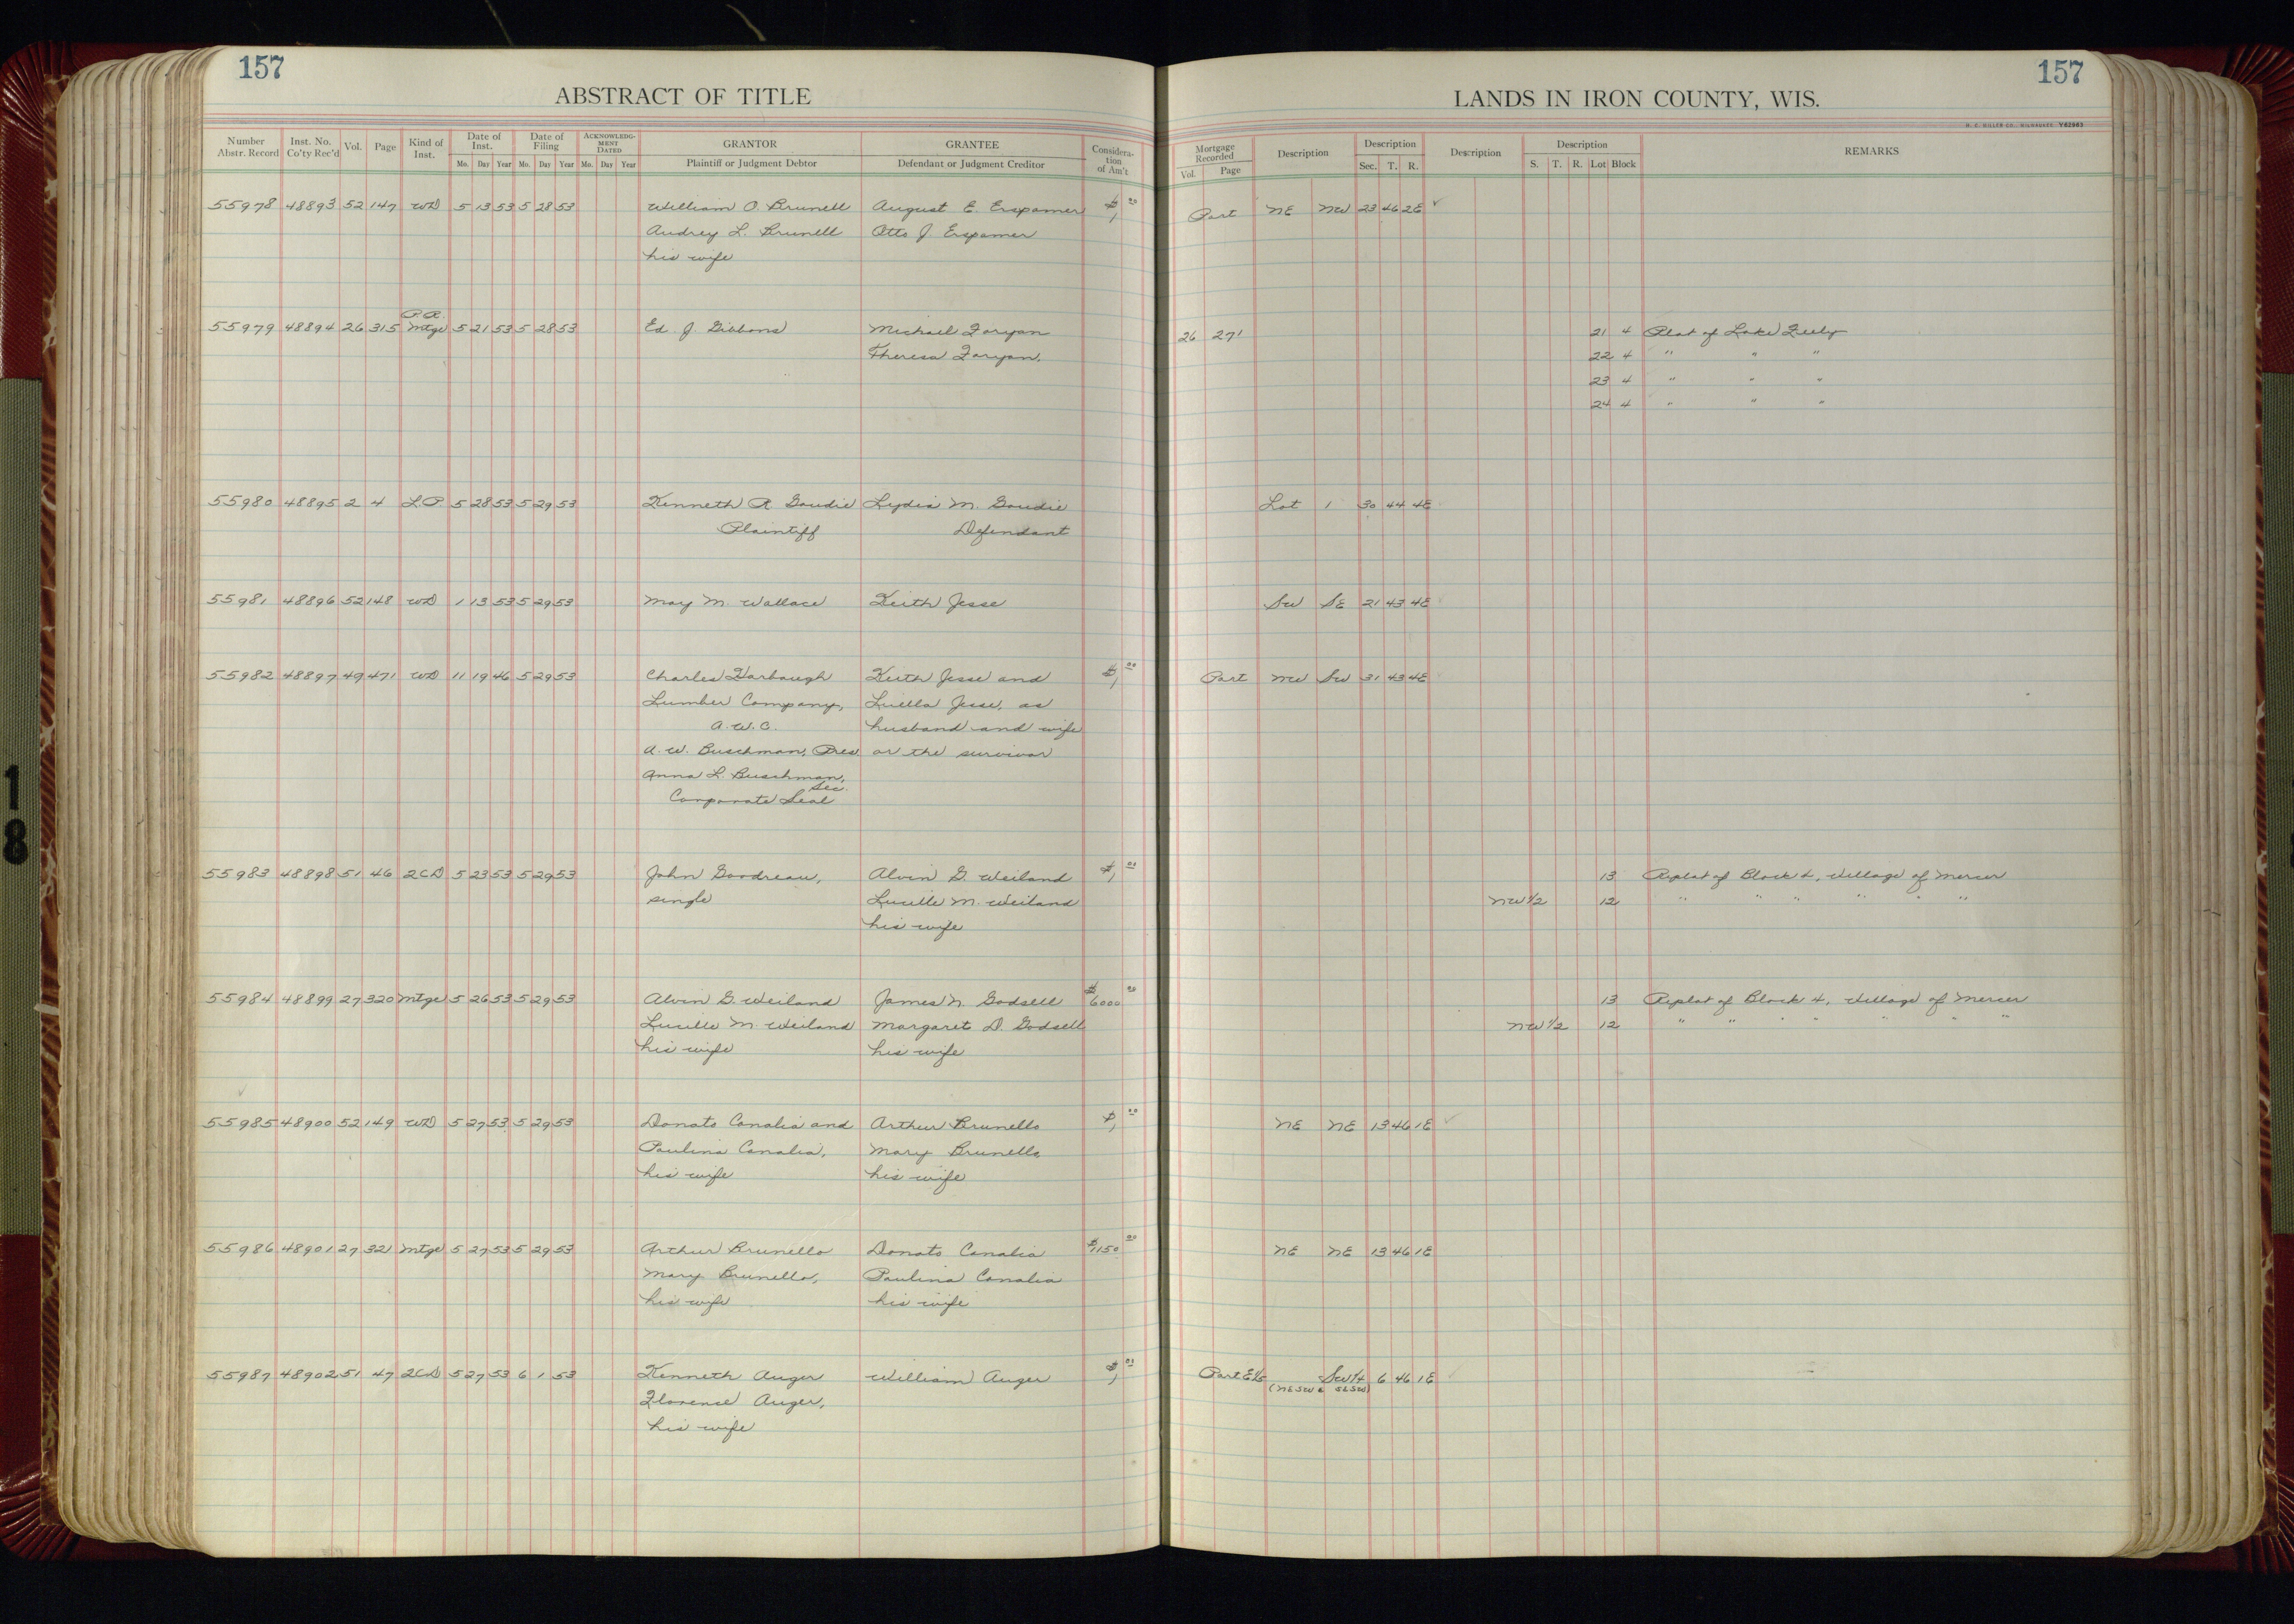 157
ABSTRACT OF TITLE
Number Abstr. Record | Inst. No. Co'ty Rec'd | Vol. | Page | Kind of Inst. | Date of Inst. Mo. Day Year | Date of Filing Mo. Day Year | ACKNOWLEDGMENT DATED Mo. Day Year | GRANTOR Plaintiff or Judgment Debtor | GRANTEE Defendant or Judgment Creditor | Consideration of Am't
55978 48893 52 147 WD 5 13 53 5 28 53 William O. Brunell August E. Erspamer $1 00
Audrey L. Brunell Otto J. Erspamer
his wife
P.R.
55979 48894 26 315 Mtge 5 21 53 5 28 53 Ed. J. Gibbons Michael Foryan
Theresa Foryan.
55980 48895 2 4 L.P. 5 28 53 5 29 53 Kenneth R. Goudie Lydia M. Goudie
Plaintiff Defendant
55981 48896 52 148 WD 1 13 53 5 29 53 May M. Wallace Keith Jesse
55982 48897 49 471 WD 11 19 46 5 29 53 Charles Harbaugh Keith Jesse and $1 00
Lumber Company, Luella Jesse, as
A.W.C. husband and wife
A. W. Buschman, Pres. or the survivor
Anna L. Buschman,
Sec.
Corporate Seal
55983 48898 51 46 2CD 5 23 53 5 29 53 John Goodreau, Alvin G. Weiland $1 00
single Lucille M. Weiland
his wife
55984 48899 27 320 Mtge 5 26 53 5 29 53 Alvin G. Weiland James N. Godsell $6000 00
Lucille M. Weiland Margaret D. Godsell
his wife his wife
55985 48900 52 149 WD 5 27 53 5 29 53 Donato Canalia and Arthur Brunello $1 00
Paulina Canalia, Mary Brunello
his wife his wife
55986 48901 27 321 Mtge 5 27 53 5 29 53 Arthur Brunello Donato Canalia $1150 00
Mary Brunello, Paulina Canalia
his wife his wife
55987 48902 51 47 2CD 5 27 53 6 1 53 Kenneth Auger William Auger $1 00
Florence Auger,
his wife
157
LANDS IN IRON COUNTY, WIS.
H. C. MILLER CO., MILWAUKEE Y62983
Mortgage Recorded Vol. Page | Description | Description Sec. T. R. | Description | Description S. T. R. Lot Block | REMARKS
Part NE NW 23 46 2E ✓
26 271 21 4 Plat of Lake
22 4 " " "
23 4 " " "
24 4 " " "
Lot 1 30 44 4E
SW SE 21 43 4E ✓
Part NW SW 31 43 4E
13 Replat of Block 4, Village of Mercer
NW 1/2 12 " " " " " "
13 Replat of Block 4, Village of Mercer
NW 1/2 12 " " " " " " "
NE NE 13 46 1E ✓
NE NE 13 46 1E
Part E½ SW¼ 6 46 1E ✓
(NESW & SESW)
18